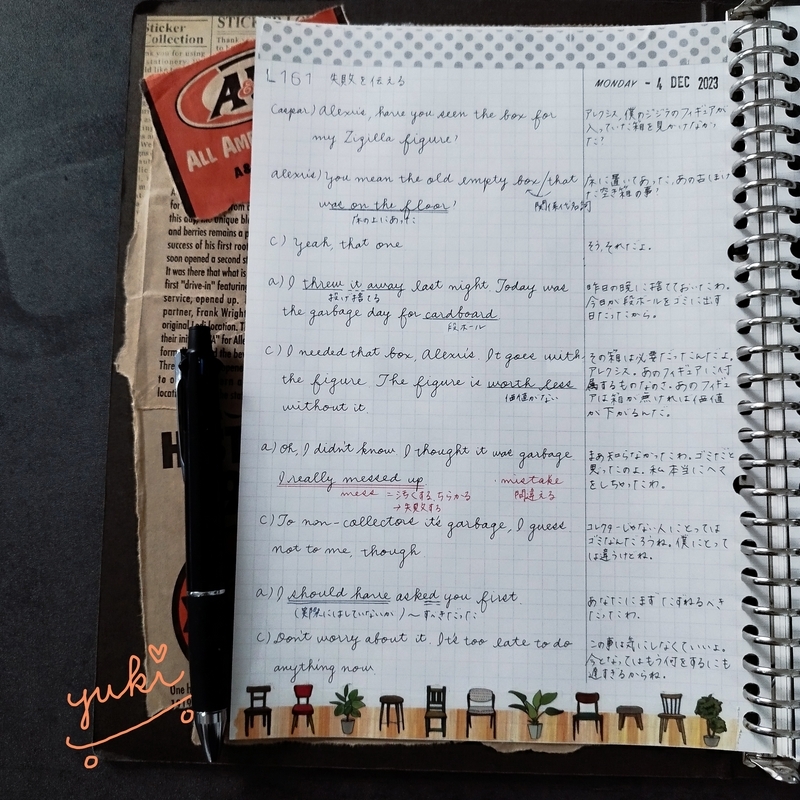 Sticker
Collection
STICKER
A&
ALL AME
L161 失敗を伝える
MONDAY - 4 DEC 2023
Caspar) Alexis, have you seen the box for
my Zigilla figure?
アレクシス、僕のジジラのフィギュアが
入っていた箱を見かけなかっ
た?
Alexis) You mean the old empty box/that
was on the floor?
床の上にあった
関係代名詞
床に置いてあった、あの古ぼけ
た空き箱の事?
C) Yeah, that one
そう、それだよ。
a) I threw it away last night. Today was
投げ捨てる
the garbage day for cardboard
段ボール
昨日の晩に捨てておいたわ。
今日が段ボールをゴミに出す
日だったから。
C) I needed that box, Alexis. It goes with
the figure. The figure is worth less
価値がない
without it.
その箱は必要だったんだよ。
アレクシス。あのフィギュアに付
属するものなのさ。あのフィギュ
アは箱が無ければ価値
が下がるんだ。
a) Oh, I didn't know I thought it was garbage
I really messed up
mess = 汚くする、ちらかる
→失敗する
・mistake
間違える
まあ知らなかったわ。ゴミだと
思ったのよ。私本当にヘマ
をしちゃったわ。
C) To non-collectors it's garbage, I guess
not to me, though.
コレクターじゃない人にとっては
ゴミなんだろうね。僕にとって
は違うけどね。
a) I should have asked you first.
(実際にはしていないが) ~すべきだった
あなたにまずたずねるべき
だったわ。
C) Don't worry about it. It's too late to do
anything now.
この事は気にしなくていいよ。
今となってはもう何をするにも
遅すぎるからね。
for
this day,
and berries remains a p
success of his first root
soon opened a second st
It was there that what is
first "drive-in" featuring
service, opened up.
partner, Frank Wright
original
their
yuki